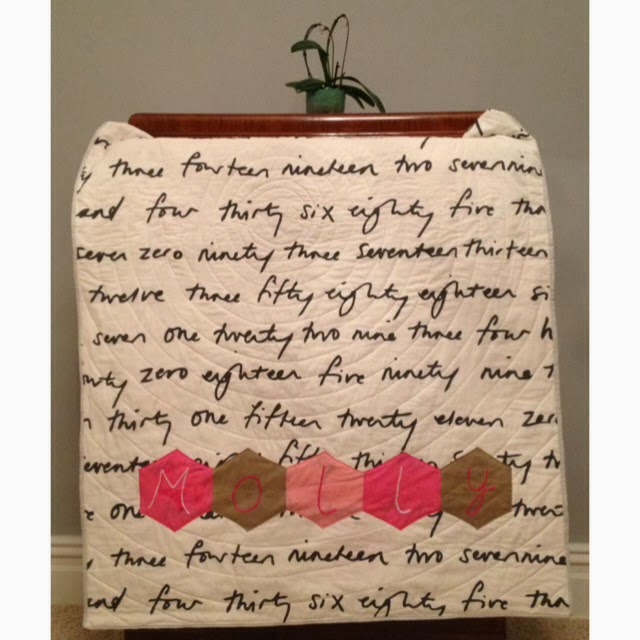 three fourteen nineteen two seven nine
and four thirty six eighty five tho
seven zero ninety three seventeen thirteen
twelve three fifty eighty eighteen si
seven one twenty two nine three four h
zero eighteen five ninety nine
thirty one fifteen twenty eleven zero
Molly
one
three fourteen nineteen two seven nine
and four thirty six eighty five tho